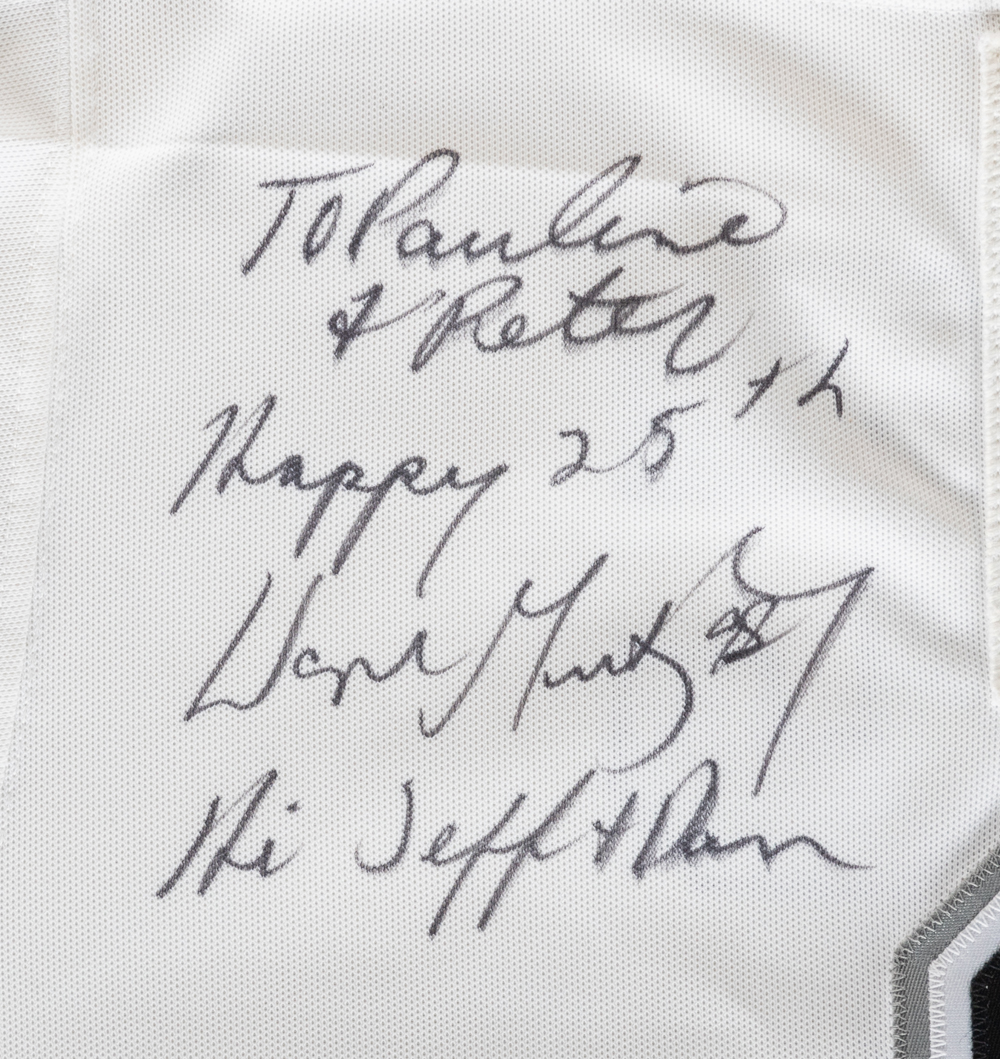 To Pauline
& Peter
Happy 25th
Hi Jeff & Dan